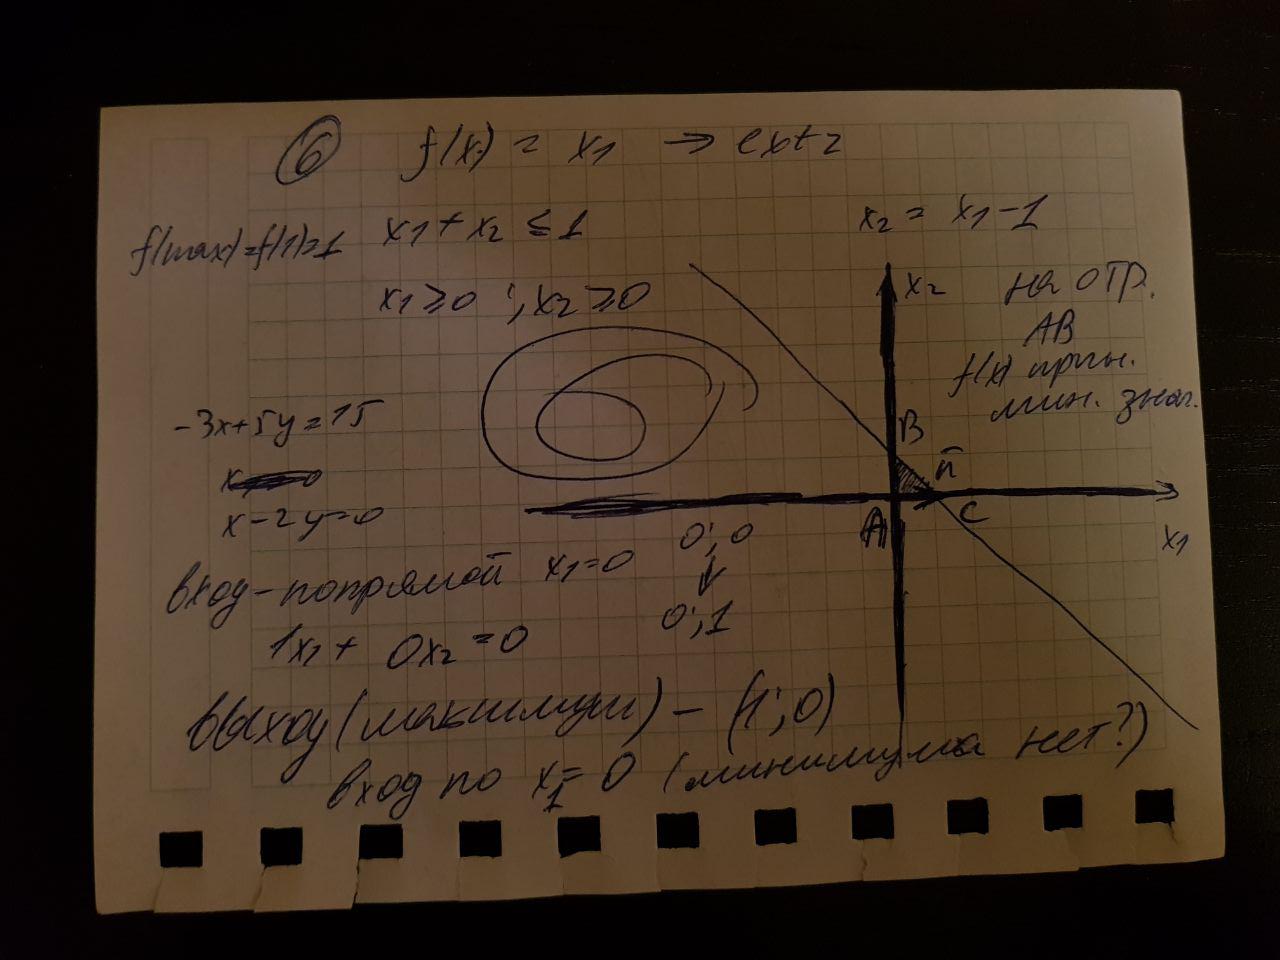 6 f(x) = x1 → extr
f(max)=f(1)=1
x1 + x2 ≤ 1
x2 = x1 - 1
x1 ≥ 0 ; x2 ≥ 0
x2
на отр.
AB
f(x) прин.
мин. знач.
-3x+5y=15
x-2y=0
B
n̄
A
C
x1
вход - по прямой x1=0
0;0
↓
0;1
1x1 + 0x2 = 0
выход (максимум) - (1;0)
вход по x1 = 0 (минимума нет?)